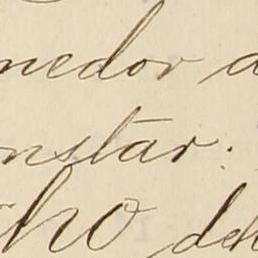 nedor a
nstar.
ho deh